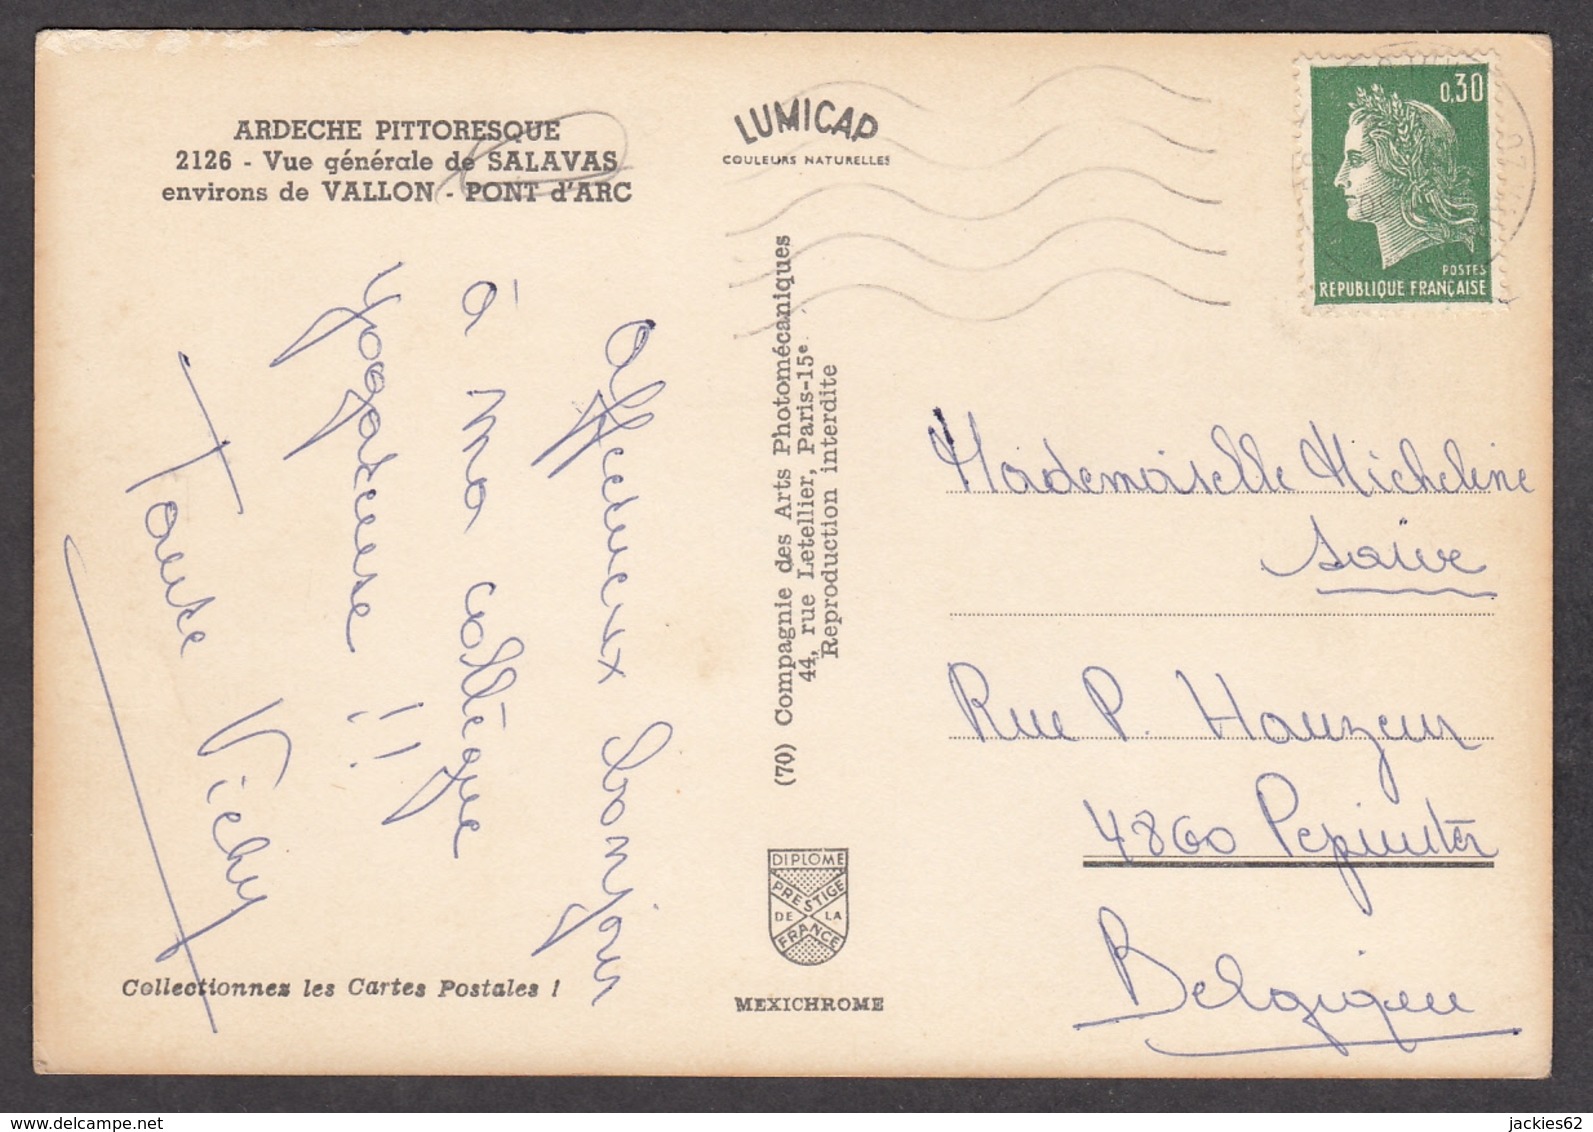 ARDECHE PITTORESQUE
2126 - Vue générale de SALAVAS
environs de VALLON - PONT d'ARC
Affectueux bonjour
à ma collègue
yogateuse !!
Tante Vichy
Collectionnez les Cartes Postales !
LUMICAP
COULEURS NATURELLES
(70) Compagnie des Arts Photomécaniques
44, rue Letellier, Paris-15e
Reproduction interdite
DIPLOME
PRESTIGE
DE LA
FRANCE
MEXICHROME
0,30
POSTES
REPUBLIQUE FRANÇAISE
Mademoiselle Micheline
Saive
Rue P. Hauzeur
4860 Pepinster
Belgique
www.delcampe.net
jackies62